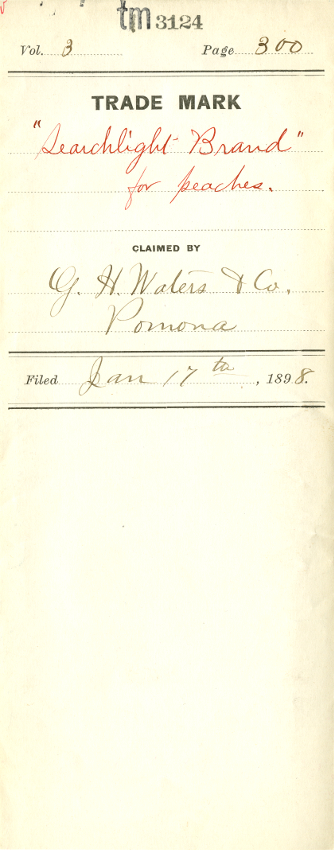 tm 3124
Vol. 3 Page 300
TRADE MARK
"Searchlight Brand"
for peaches.
CLAIMED BY
G. H. Waters & Co.
Pomona
Filed Jan 17th, 1898.